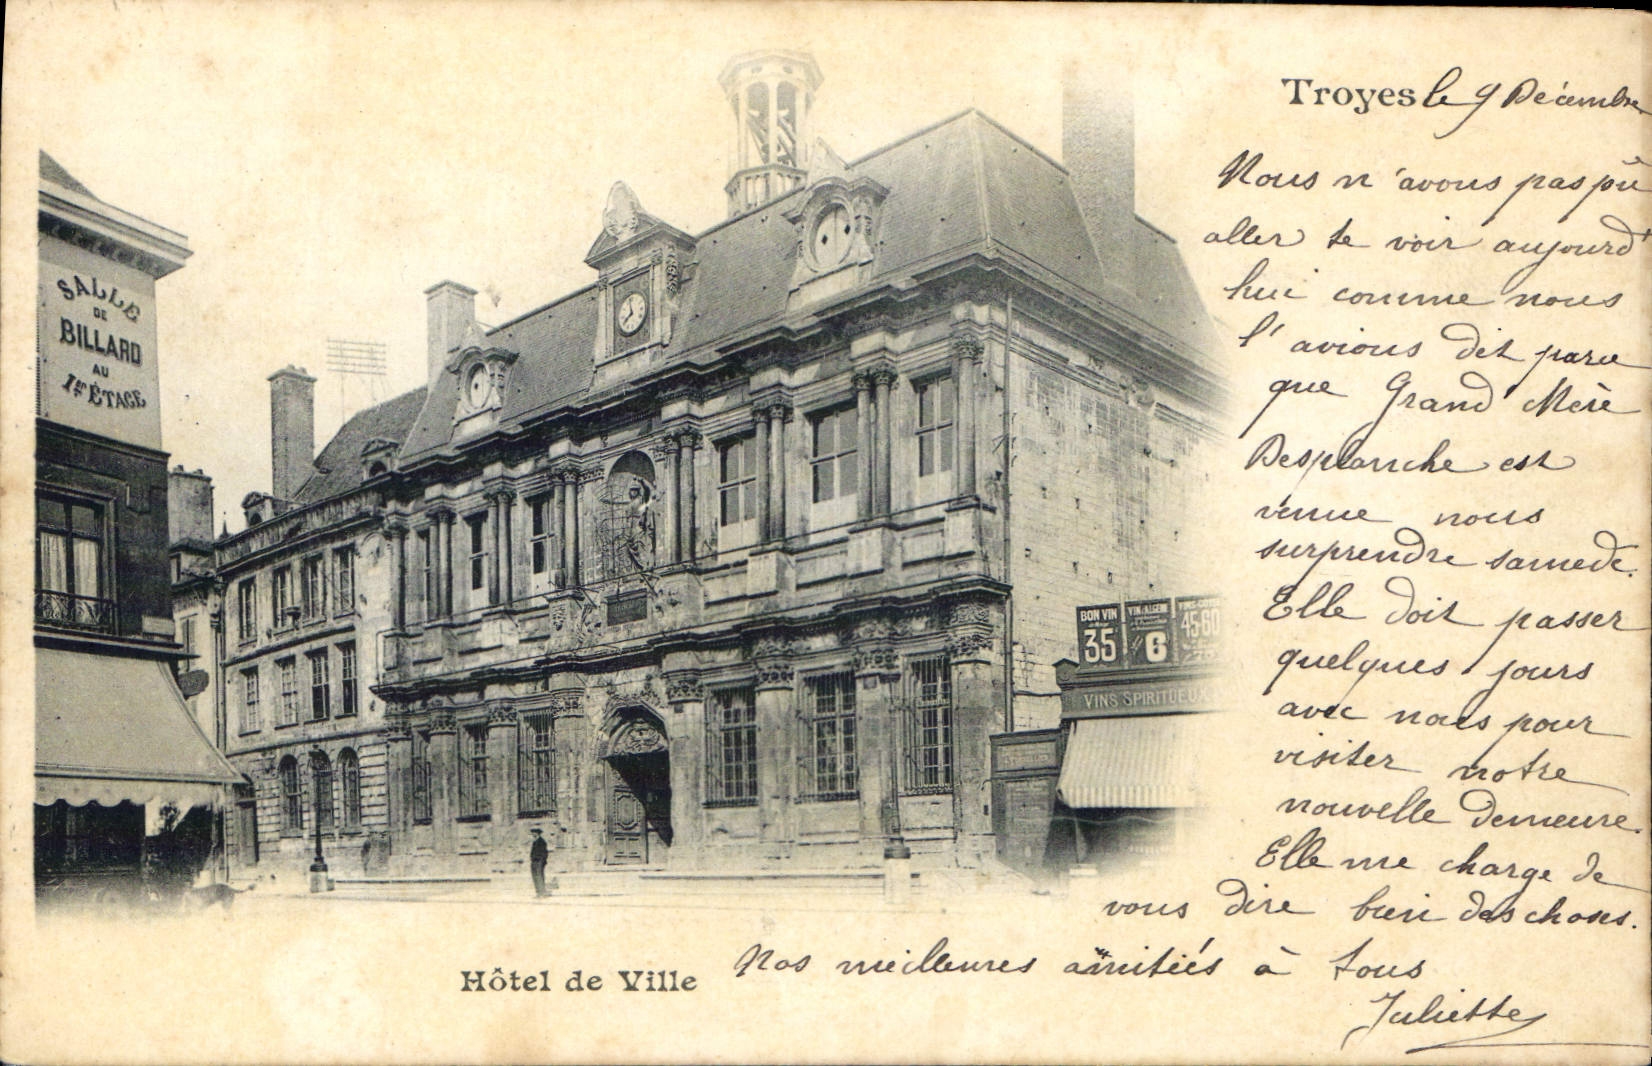 Troyes le 9 Décembre
Nous n'avons pas pû
aller te voir aujourd'
hui comme nous
l'avions dit parce
que Grand Mère
Desplanche est
venue nous
surprendre samedi.
Elle doit passer
quelques jours
avec nous pour
visiter notre
nouvelle demeure.
Elle me charge de
vous dire bien des choses.
Nos meilleures amitiés à tous
Juliette
Hôtel de Ville
SALLE
DE
BILLARD
AU
1er ÉTAGE
BON VIN
35
VIN ALGÉRIE
6
45 60
VINS SPIRITUEUX